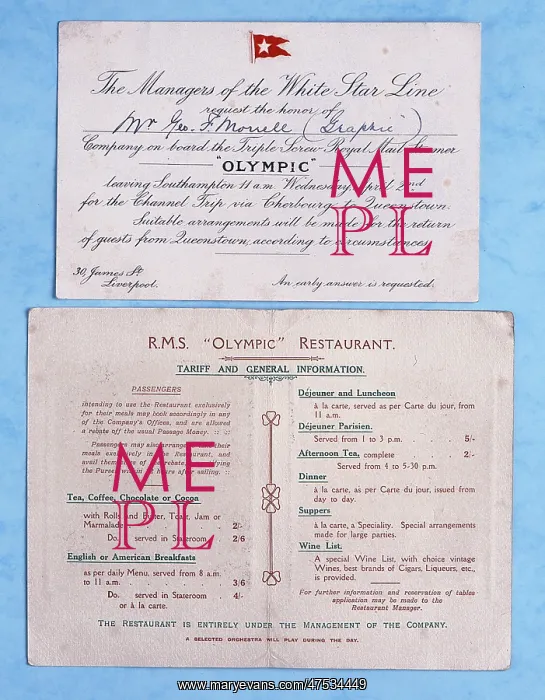 The Managers of the White Star Line
request the honor of
Mr Geo. F. Morrell (Graphic)
Company on board the Triple Screw Royal Mail Steamer
"OLYMPIC"
leaving Southampton 11 a.m. Wednesday, April 2nd
for the Channel Trip via Cherbourg to Queenstown.
Suitable arrangements will be made for the return
of guests from Queenstown, according to circumstances.
30, James St
Liverpool.
An early answer is requested.
ME
PL
R.M.S. "OLYMPIC" RESTAURANT.
TARIFF AND GENERAL INFORMATION.
PASSENGERS
intending to use the Restaurant exclusively
for their meals may book accordingly in any
of the Company's Offices, and are allowed
a rebate off the usual Passage Money. :: ::
Passengers may also arrange their
meals exclusively in the Restaurant, and
avail them of rebate
the Purser hours after sailing. ::
Tea, Coffee, Chocolate or Cocoa
with Rolls and Butter, Toast, Jam or
Marmalade 2/-
Do. served in Stateroom 2/6
English or American Breakfasts
as per daily Menu, served from 8 a.m.
to 11 a.m. 3/6
Do. served in Stateroom 4/-
or à la carte.
ME
PL
Déjeuner and Luncheon
à la carte, served as per Carte du jour, from
11 a.m.
Déjeuner Parisien.
Served from 1 to 3 p.m. 5/-
Afternoon Tea, complete 2/-
Served from 4 to 5-30 p.m.
Dinner
à la carte, as per Carte du jour, issued from
day to day.
Suppers
à la carte, a Speciality. Special arrangements
made for large parties.
Wine List.
A special Wine List, with choice vintage
Wines, best brands of Cigars, Liqueurs, etc.,
is provided.
For further information and reservation of tables
application may be made to the
Restaurant Manager.
THE RESTAURANT IS ENTIRELY UNDER THE MANAGEMENT OF THE COMPANY.
A SELECTED ORCHESTRA WILL PLAY DURING THE DAY.
www.maryevans.com/47534449